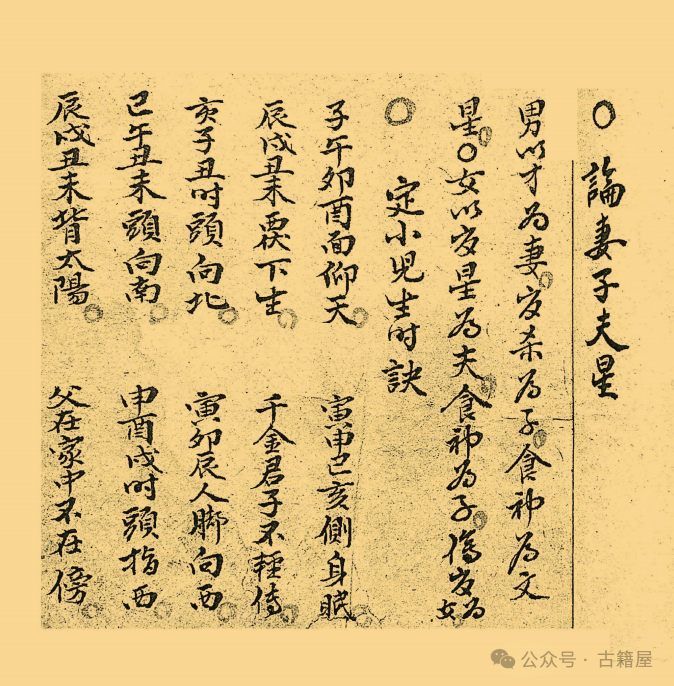 ○論妻子夫星
男以才为妻官杀为子食神為文
星○女以官星為夫食神為子傷官為女
○定小児生时訣
子午卯酉面仰天 寅申巳亥側身眠
辰戌丑未覆下生 千金君子不輕傳
亥子丑时頭向北 寅卯辰人脚向西
巳午丑未頭向南 申酉戌时頭指西
辰戌丑未背太陽 父在家中不在傍
公众号 · 古籍屋